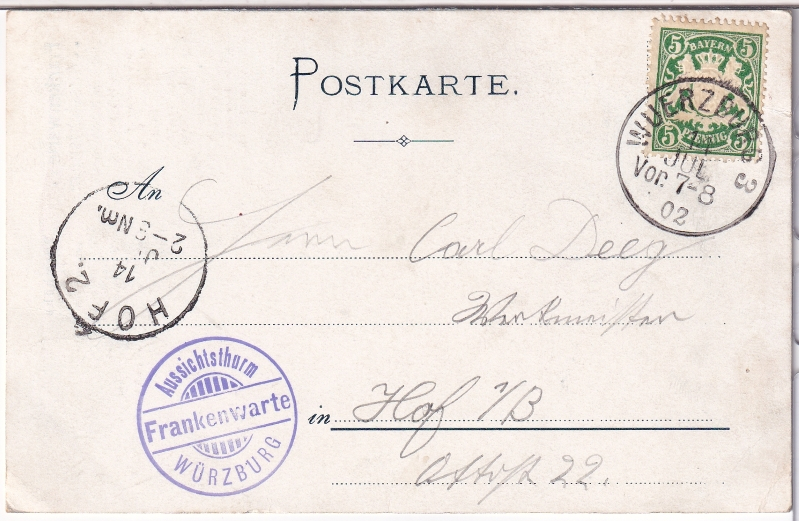 POSTKARTE.
5 BAYERN 5
5 PFENNIG 5
WUERZBURG 3
JUL
Vor. 7-8
02
An
Herrn Carl Deeg
Werkmeister
in Hof i/B
22.
HOF 2.
14
2-3 Nm.
Aussichtsthurm
Frankenwarte
WÜRZBURG